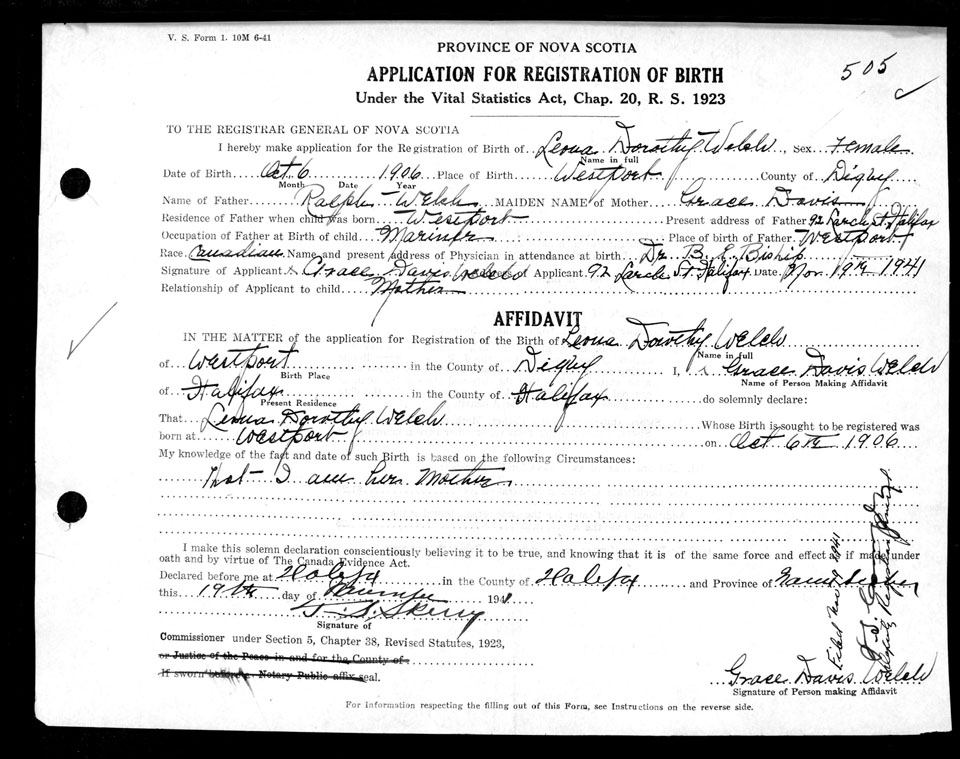 V. S. Form 1. 10M 6-41
PROVINCE OF NOVA SCOTIA
505
APPLICATION FOR REGISTRATION OF BIRTH
Under the Vital Statistics Act, Chap. 20, R. S. 1923
TO THE REGISTRAR GENERAL OF NOVA SCOTIA
I hereby make application for the Registration of Birth of Leona Dorothy Welch, Sex Female
Name in full
Date of Birth Oct 6 1906 Place of Birth Westport County of Digby
Month Date Year
Name of Father Ralph Welch MAIDEN NAME of Mother Grace Davis
Residence of Father when child was born Westport Present address of Father 92 Larch St. Halifax
Occupation of Father at Birth of child Mariner Place of birth of Father Westport
Race Canadian Name and present address of Physician in attendance at birth Dr. B. E. Biship
Signature of Applicant x Grace Davis Welch of Applicant 92 Larch St Halifax Date Nov. 19th 1941
Relationship of Applicant to child Mother
AFFIDAVIT
IN THE MATTER of the application for Registration of the Birth of Leona Dorothy Welch
Name in full
of Westport in the County of Digby I, Grace Davis Welch
Birth Place
Name of Person Making Affidavit
of Halifax in the County of Halifax do solemnly declare:
Present Residence
That Leona Dorothy Welch Whose Birth is sought to be registered was
born at Westport on Oct 6th 1906
My knowledge of the fact and date of such Birth is based on the following Circumstances:
That I am her Mother
I make this solemn declaration conscientiously believing it to be true, and knowing that it is of the same force and effect as if made under
oath and by virtue of The Canada Evidence Act.
Declared before me at Halifax in the County of Halifax and Province of Nova Scotia
this 19th day of November 1941
Skerry
Signature of
Commissioner under Section 5, Chapter 38, Revised Statutes, 1923,
or Justice of the Peace in and for the County of
If sworn before a Notary Public affix seal.
Grace Davis Welch
Signature of Person making Affidavit
Filed Nov 19 1941
Deputy Registrar
For Information respecting the filling out of this Form, see Instructions on the reverse side.